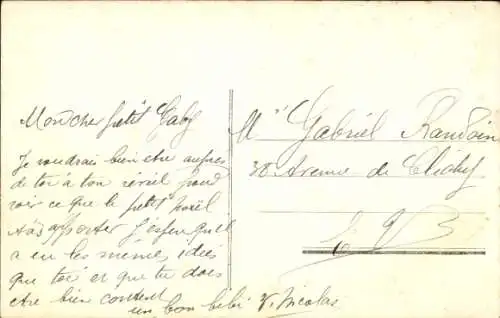 Mon cher petit Gaby
Je voudrais bien être auprès
de toi à ton réveil pour
voir ce que le petit Noël
apporter j'espère qu'il
a eu les même idées
que toi et que tu dois
être bien content
un bon bébé V. Nicolas
Mr Gabriel Randoin
38 Avenue de Clichy